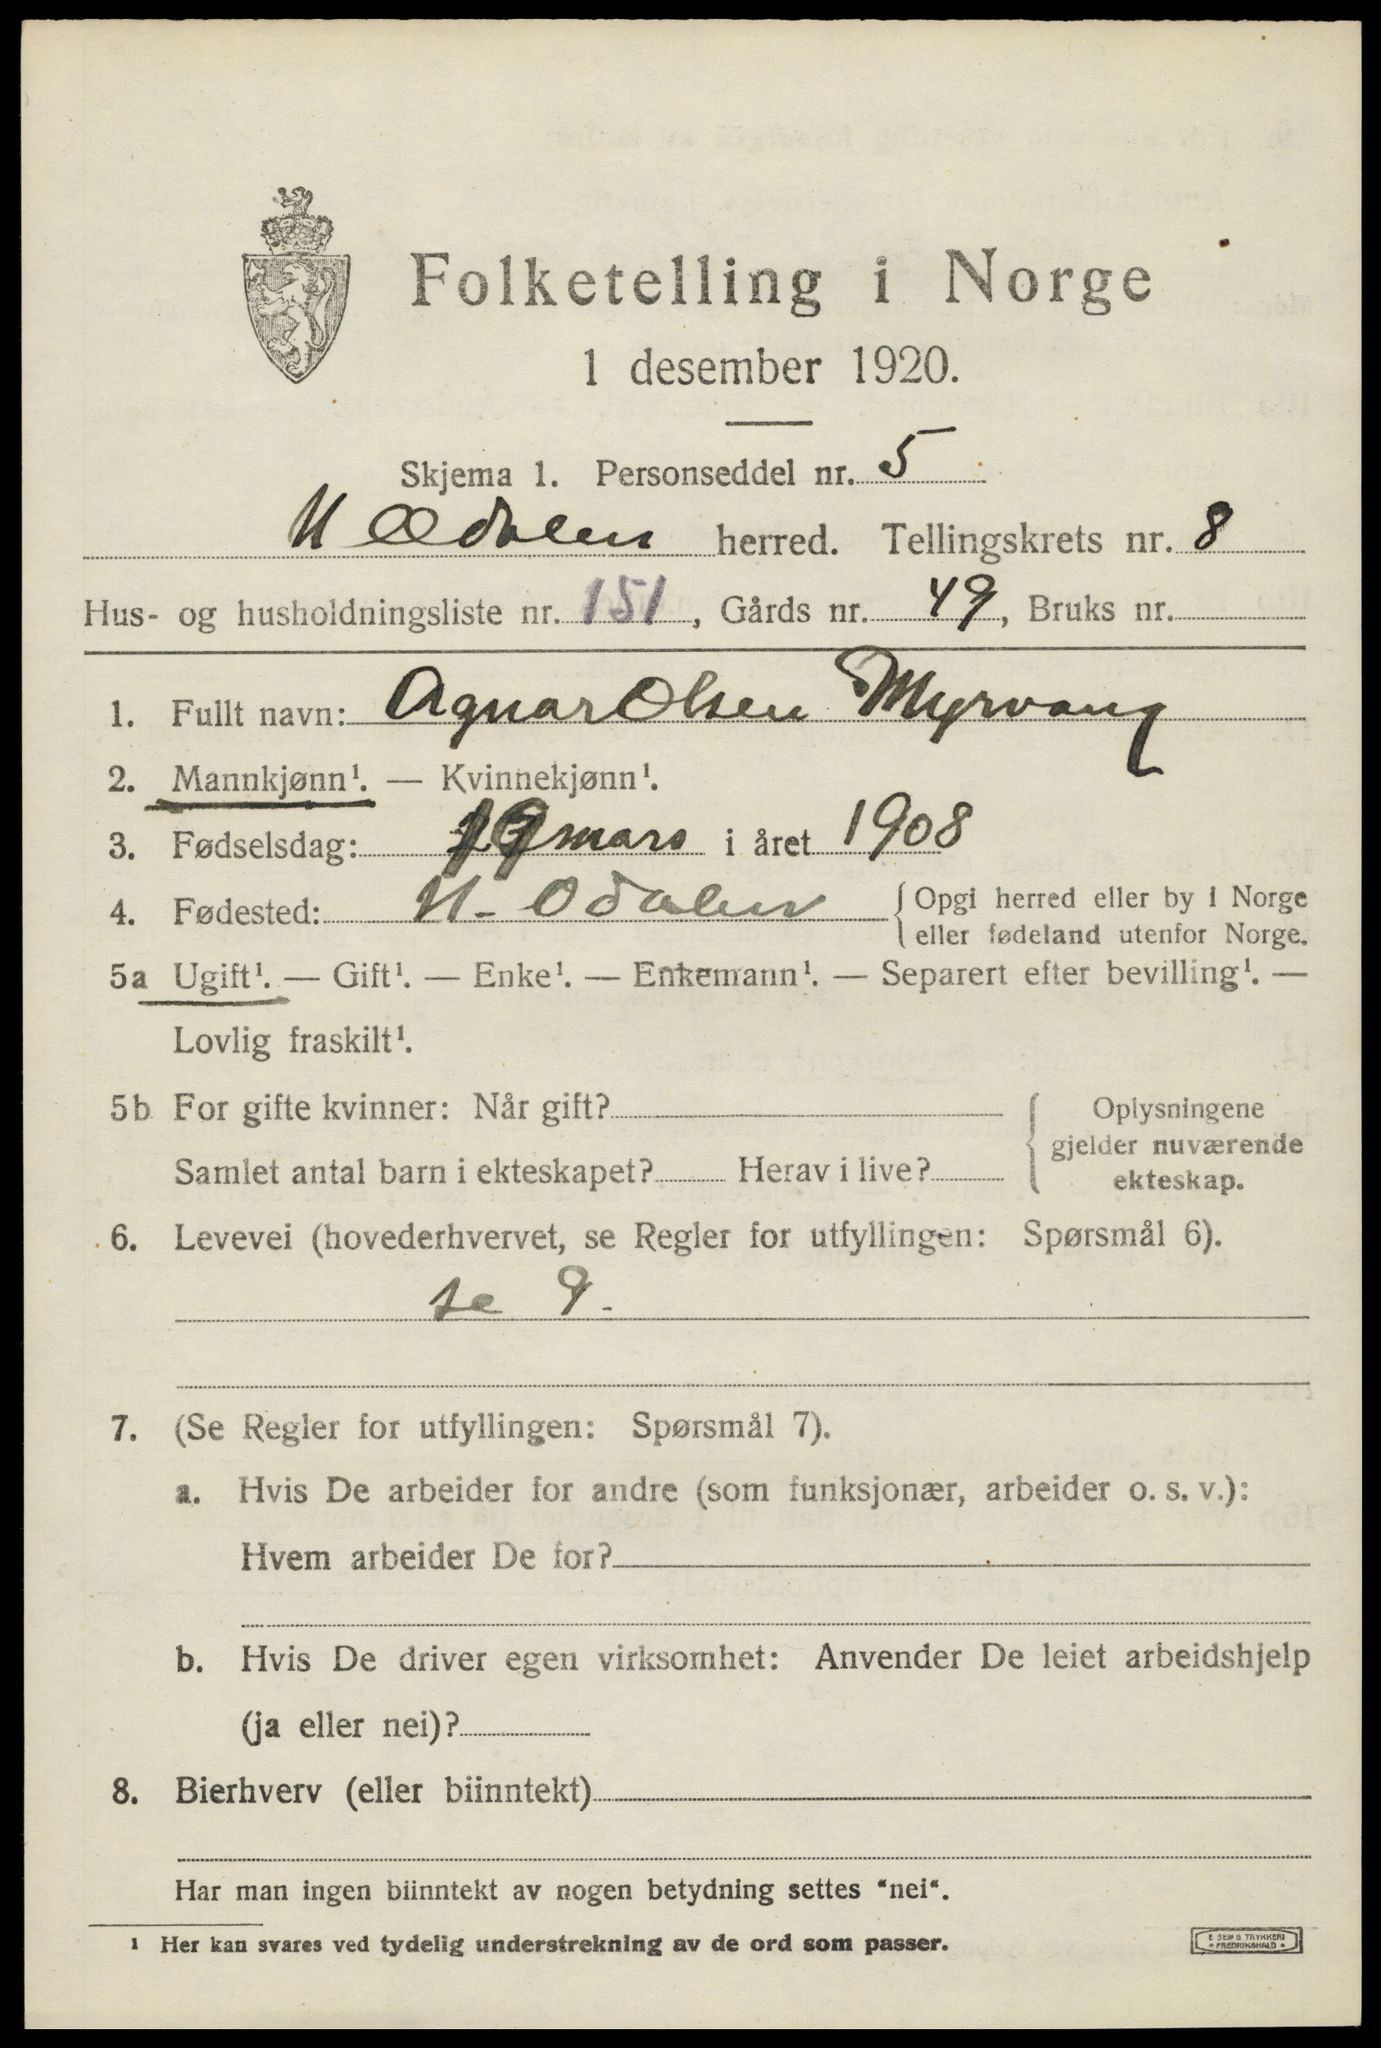 Folketelling i Norge
1 desember 1920.
Skjema 1. Personseddel nr. 5
N Odalen herred. Tellingskrets nr. 8
Hus- og husholdningsliste nr. 151, Gårds nr. 49, Bruks nr.
1. Fullt navn: Agnar Olsen Myrvang
2. Mannkjønn¹. — Kvinnekjønn¹.
3. Fødselsdag: mars i året 1908
4. Fødested: N. Odalen { Opgi herred eller by i Norge
eller fødeland utenfor Norge.
5a Ugift¹. — Gift¹. — Enke¹. — Enkemann¹. — Separert efter bevilling¹. —
Lovlig fraskilt¹.
5b For gifte kvinner: Når gift?
Samlet antal barn i ekteskapet? Herav i live?
{ Oplysningene
gjelder nuværende
ekteskap.
6. Levevei (hovederhvervet, se Regler for utfyllingen: Spørsmål 6).
se 9.
7. (Se Regler for utfyllingen: Spørsmål 7).
a. Hvis De arbeider for andre (som funksjonær, arbeider o. s. v.):
Hvem arbeider De for?
b. Hvis De driver egen virksomhet: Anvender De leiet arbeidshjelp
(ja eller nei)?
8. Bierhverv (eller biinntekt)
Har man ingen biinntekt av nogen betydning settes "nei".
¹ Her kan svares ved tydelig understrekning av de ord som passer.
E SEM'S TRYKKERI
• FREDRIKSHALD •